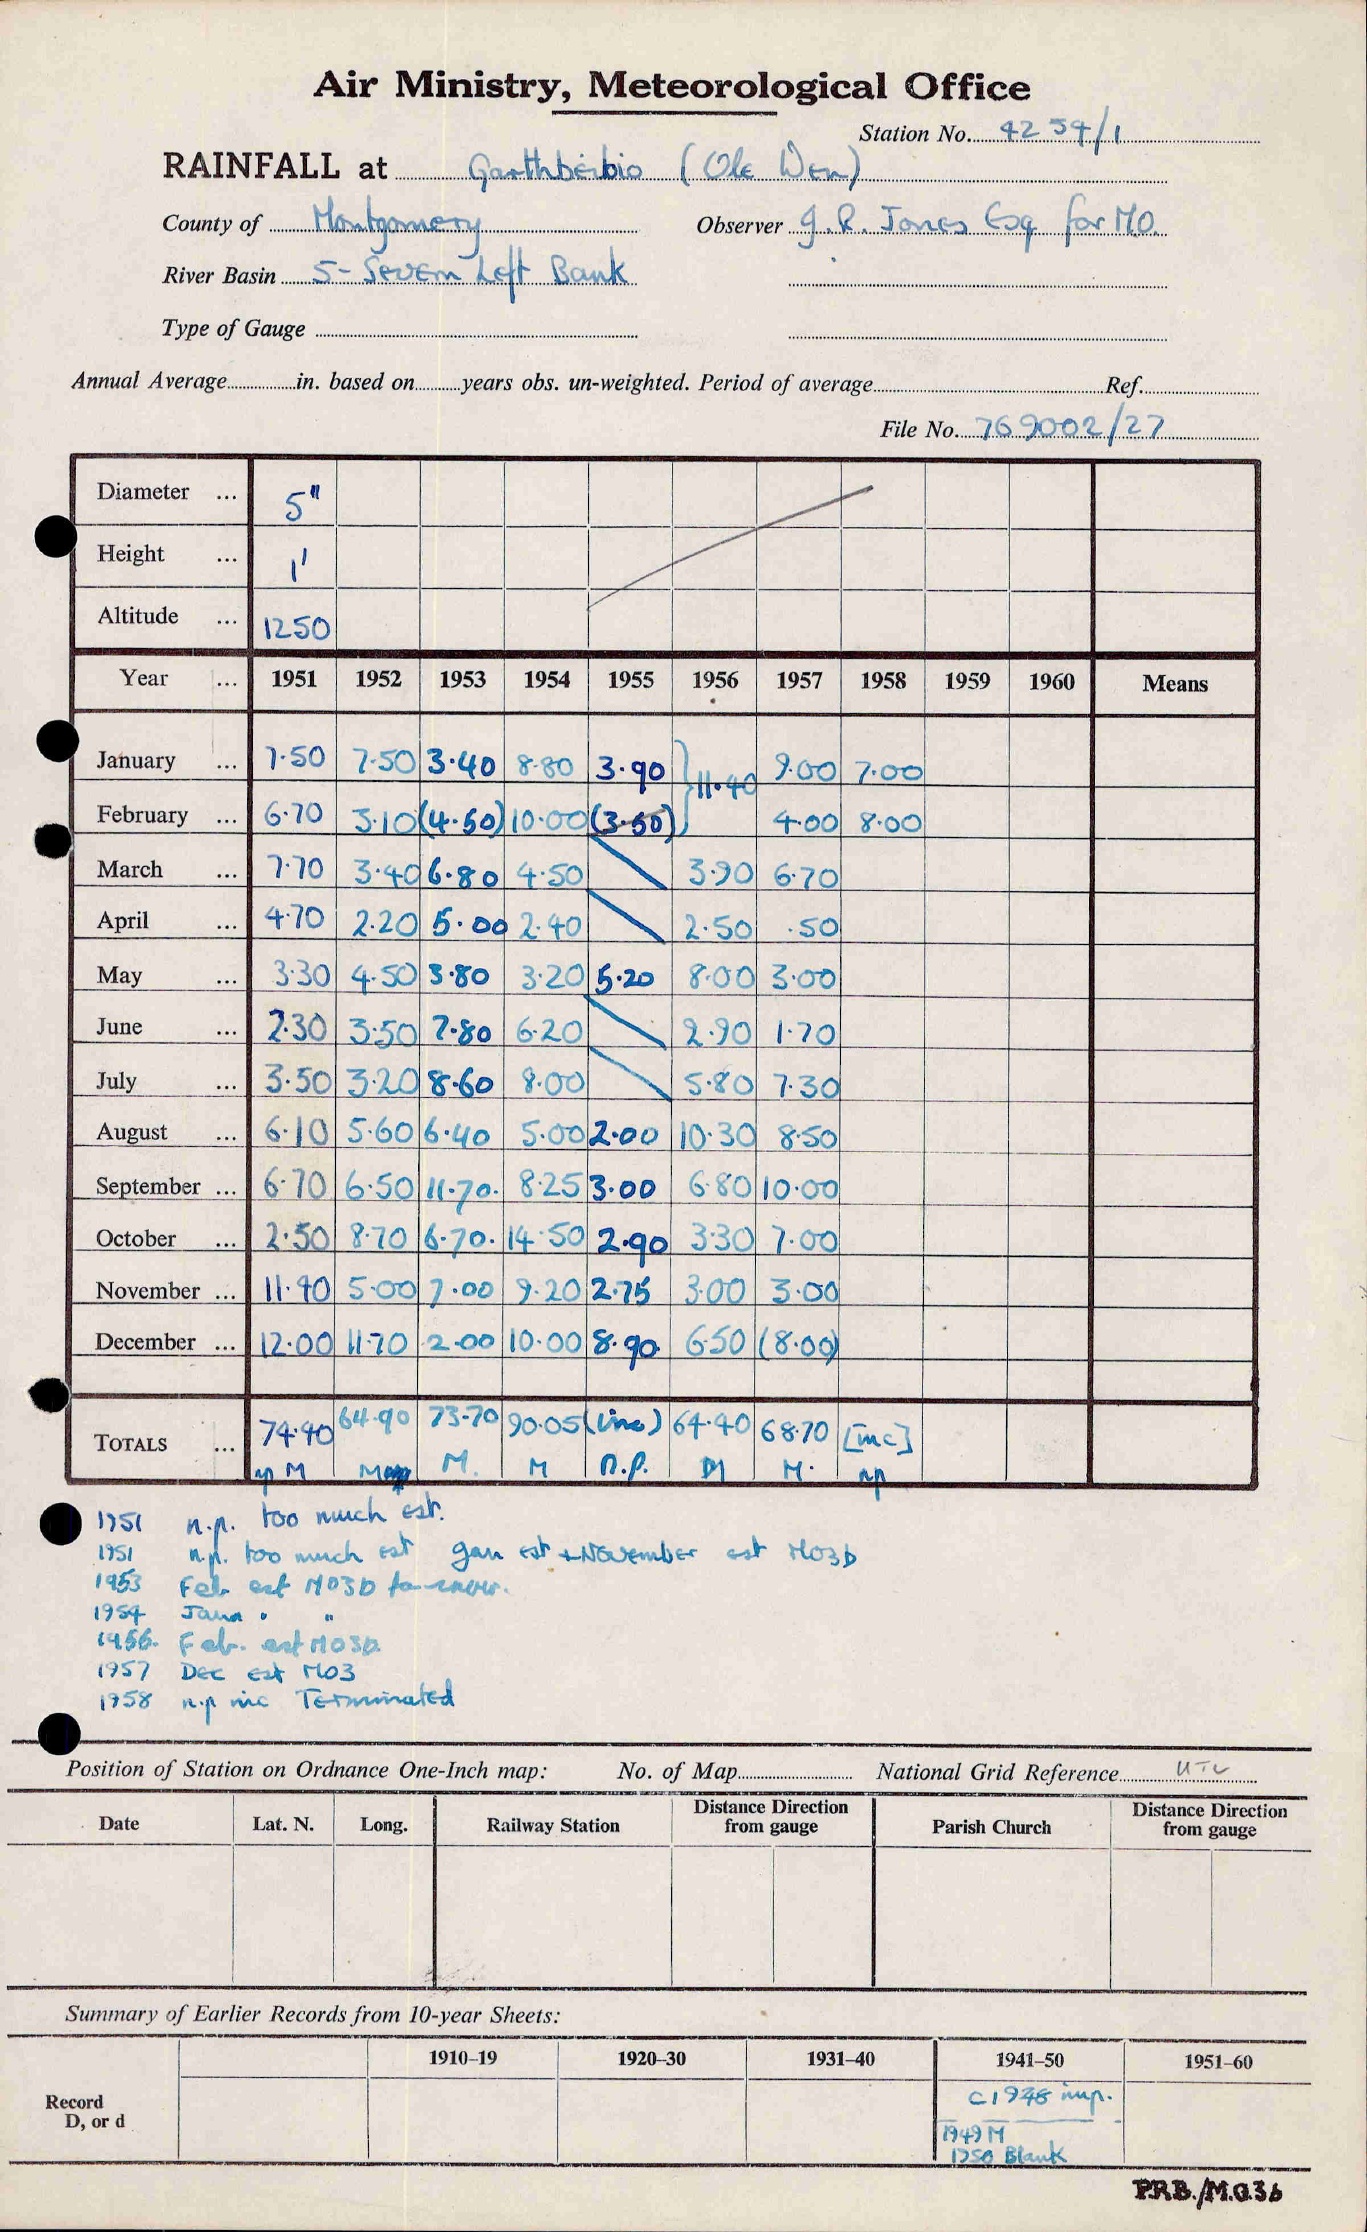 Air Ministry, Meteorological Office
Station No. 4254/1
RAINFALL at Garthbeibio (Ole Wen)
County of Montgomery Observer J. R. Jones Esq for M.O.
River Basin 5 - Severn Left Bank
Type of Gauge
Annual Average in. based on years obs. un-weighted. Period of average Ref.
File No. 769002/27
Diameter ... 5"
Height ... 1'
Altitude ... 1250
Year ... 1951 1952 1953 1954 1955 1956 1957 1958 1959 1960 Means
January ... 7.50 7.50 3.40 8.80 3.90 } 11.40 9.00 7.00
February ... 6.70 3.10 (4.50) 10.00 (3.50) 4.00 8.00
March ... 7.70 3.40 6.80 4.50 3.90 6.70
April ... 4.70 2.20 5.00 2.40 2.50 .50
May ... 3.30 4.50 3.80 3.20 5.20 8.00 3.00
June ... 2.30 3.50 7.80 6.20 2.90 1.70
July ... 3.50 3.20 8.60 8.00 5.80 7.30
August ... 6.10 5.60 6.40 5.00 2.00 10.30 8.50
September ... 6.70 6.50 11.70. 8.25 3.00 6.80 10.00
October ... 2.50 8.70 6.70. 14.50 2.90 3.30 7.00
November ... 11.90 5.00 7.00 9.20 2.75 3.00 3.00
December ... 12.00 11.70 2.00 10.00 8.90 6.50 (8.00)
TOTALS ... 74.90 64.90 73.70 90.05 (inc) 64.40 68.70 [inc]
np M M M. M n.p. M M. np
1951 n.p. too much est.
1951 n.p. too much est Jan est + November est M03b
1953 Feb est M03b for snow.
1954 Jan " "
1956. Feb. est M03b
1957 Dec est M03
1958 n.p inc Terminated
Position of Station on Ordnance One-Inch map: No. of Map National Grid Reference
Date Lat. N. Long. Railway Station Distance Direction from gauge Parish Church Distance Direction from gauge
Summary of Earlier Records from 10-year Sheets:
1910–19 1920–30 1931–40 1941–50 1951–60
Record
D, or d
c 1948 imp.
1949 M
1950 Blank
P.R.B./M.O.3b